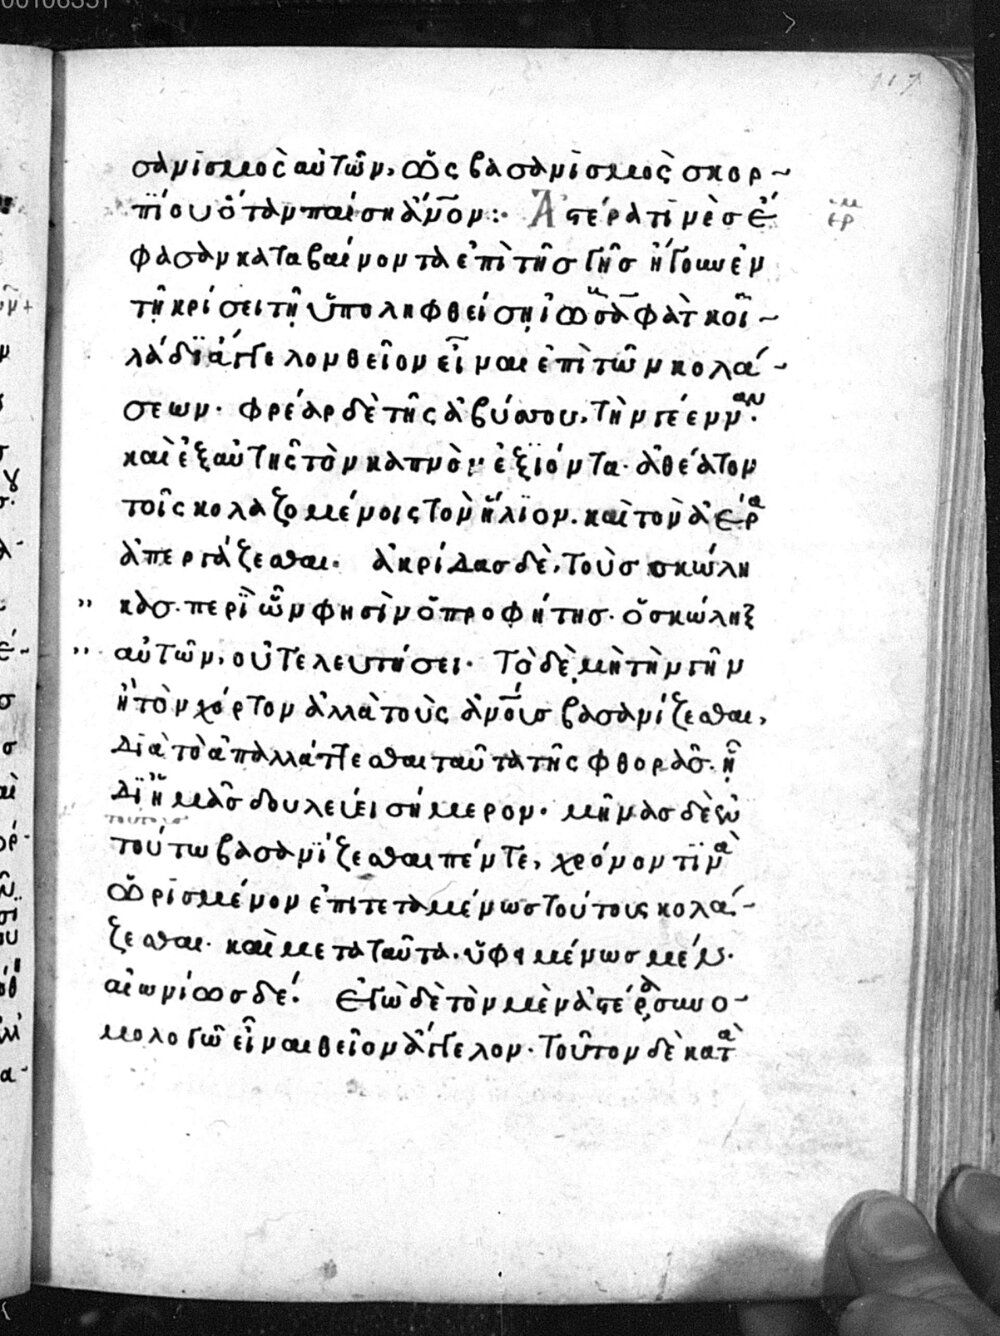 00106351
117
σανισμὸς αὐτῶν, ὡς βασανισμὸς σκορ~
πίου ὅταν παίσῃ ἄνον:· Ἀστέρα τινὲς ἔ
φασαν καταβαίνοντα ἐπὶ τῆσ γῆσ ἤγουν ἐν
τῇ κρίσει τῇ ὑποληφθείσῃ ἰωσαφὰτ κοι~
λάδι ἄγγελον θεῖον εἶναι ἐπὶ τῶν κολά-
σεων· φρέαρ δὲ τῆς ἀβύσσου, τὴν γέενναν·
καὶ ἐξ αὐτῆς τὸν καπνὸν ἐξϊόντα· ἀθέατον
τοῖς κολαζομένοις τὸν ἥλϊον· καὶ τὸν ἀέρα
ἀπεργάζεσθαι· ἀκρίδασ δὲ, τοὺσ σκώλη
κασ· περὶ ὧν φησὶν ὁ προφήτησ· ὁ σκώληξ
αὐτῶν, οὐ τελευτήσει· Τὸ δὲ μὴ τὴν γῆν
ἢ τὸν χόρτον ἀλλὰ τοὺς ἀνους βασανίζεσθαι,
διὰ τὸ ἀπαλλάττεσθαι ταῦτα τῆς φθορᾶσ· ἣ
δϊ ἡμᾶσ δουλεύει σήμερον· μῆνασ δὲ ἐν
τούτω βασανΐζεσθαι πέντε, χρόνον τϊνὰ
ὡρισμένον ἐπιτεταμένωσ τούτους κολά-
ζεσθαι· καὶ μετα ταῦτα· ὑφιμένωσ μέν·
αἰωνίωσ δέ· Ἐγὼ δὲ τὸν μὲν ἀστέρα συνο-
μολογῶ εἶναι θεῖον ἄγγελον· τοῦτον δὲ κατὰ